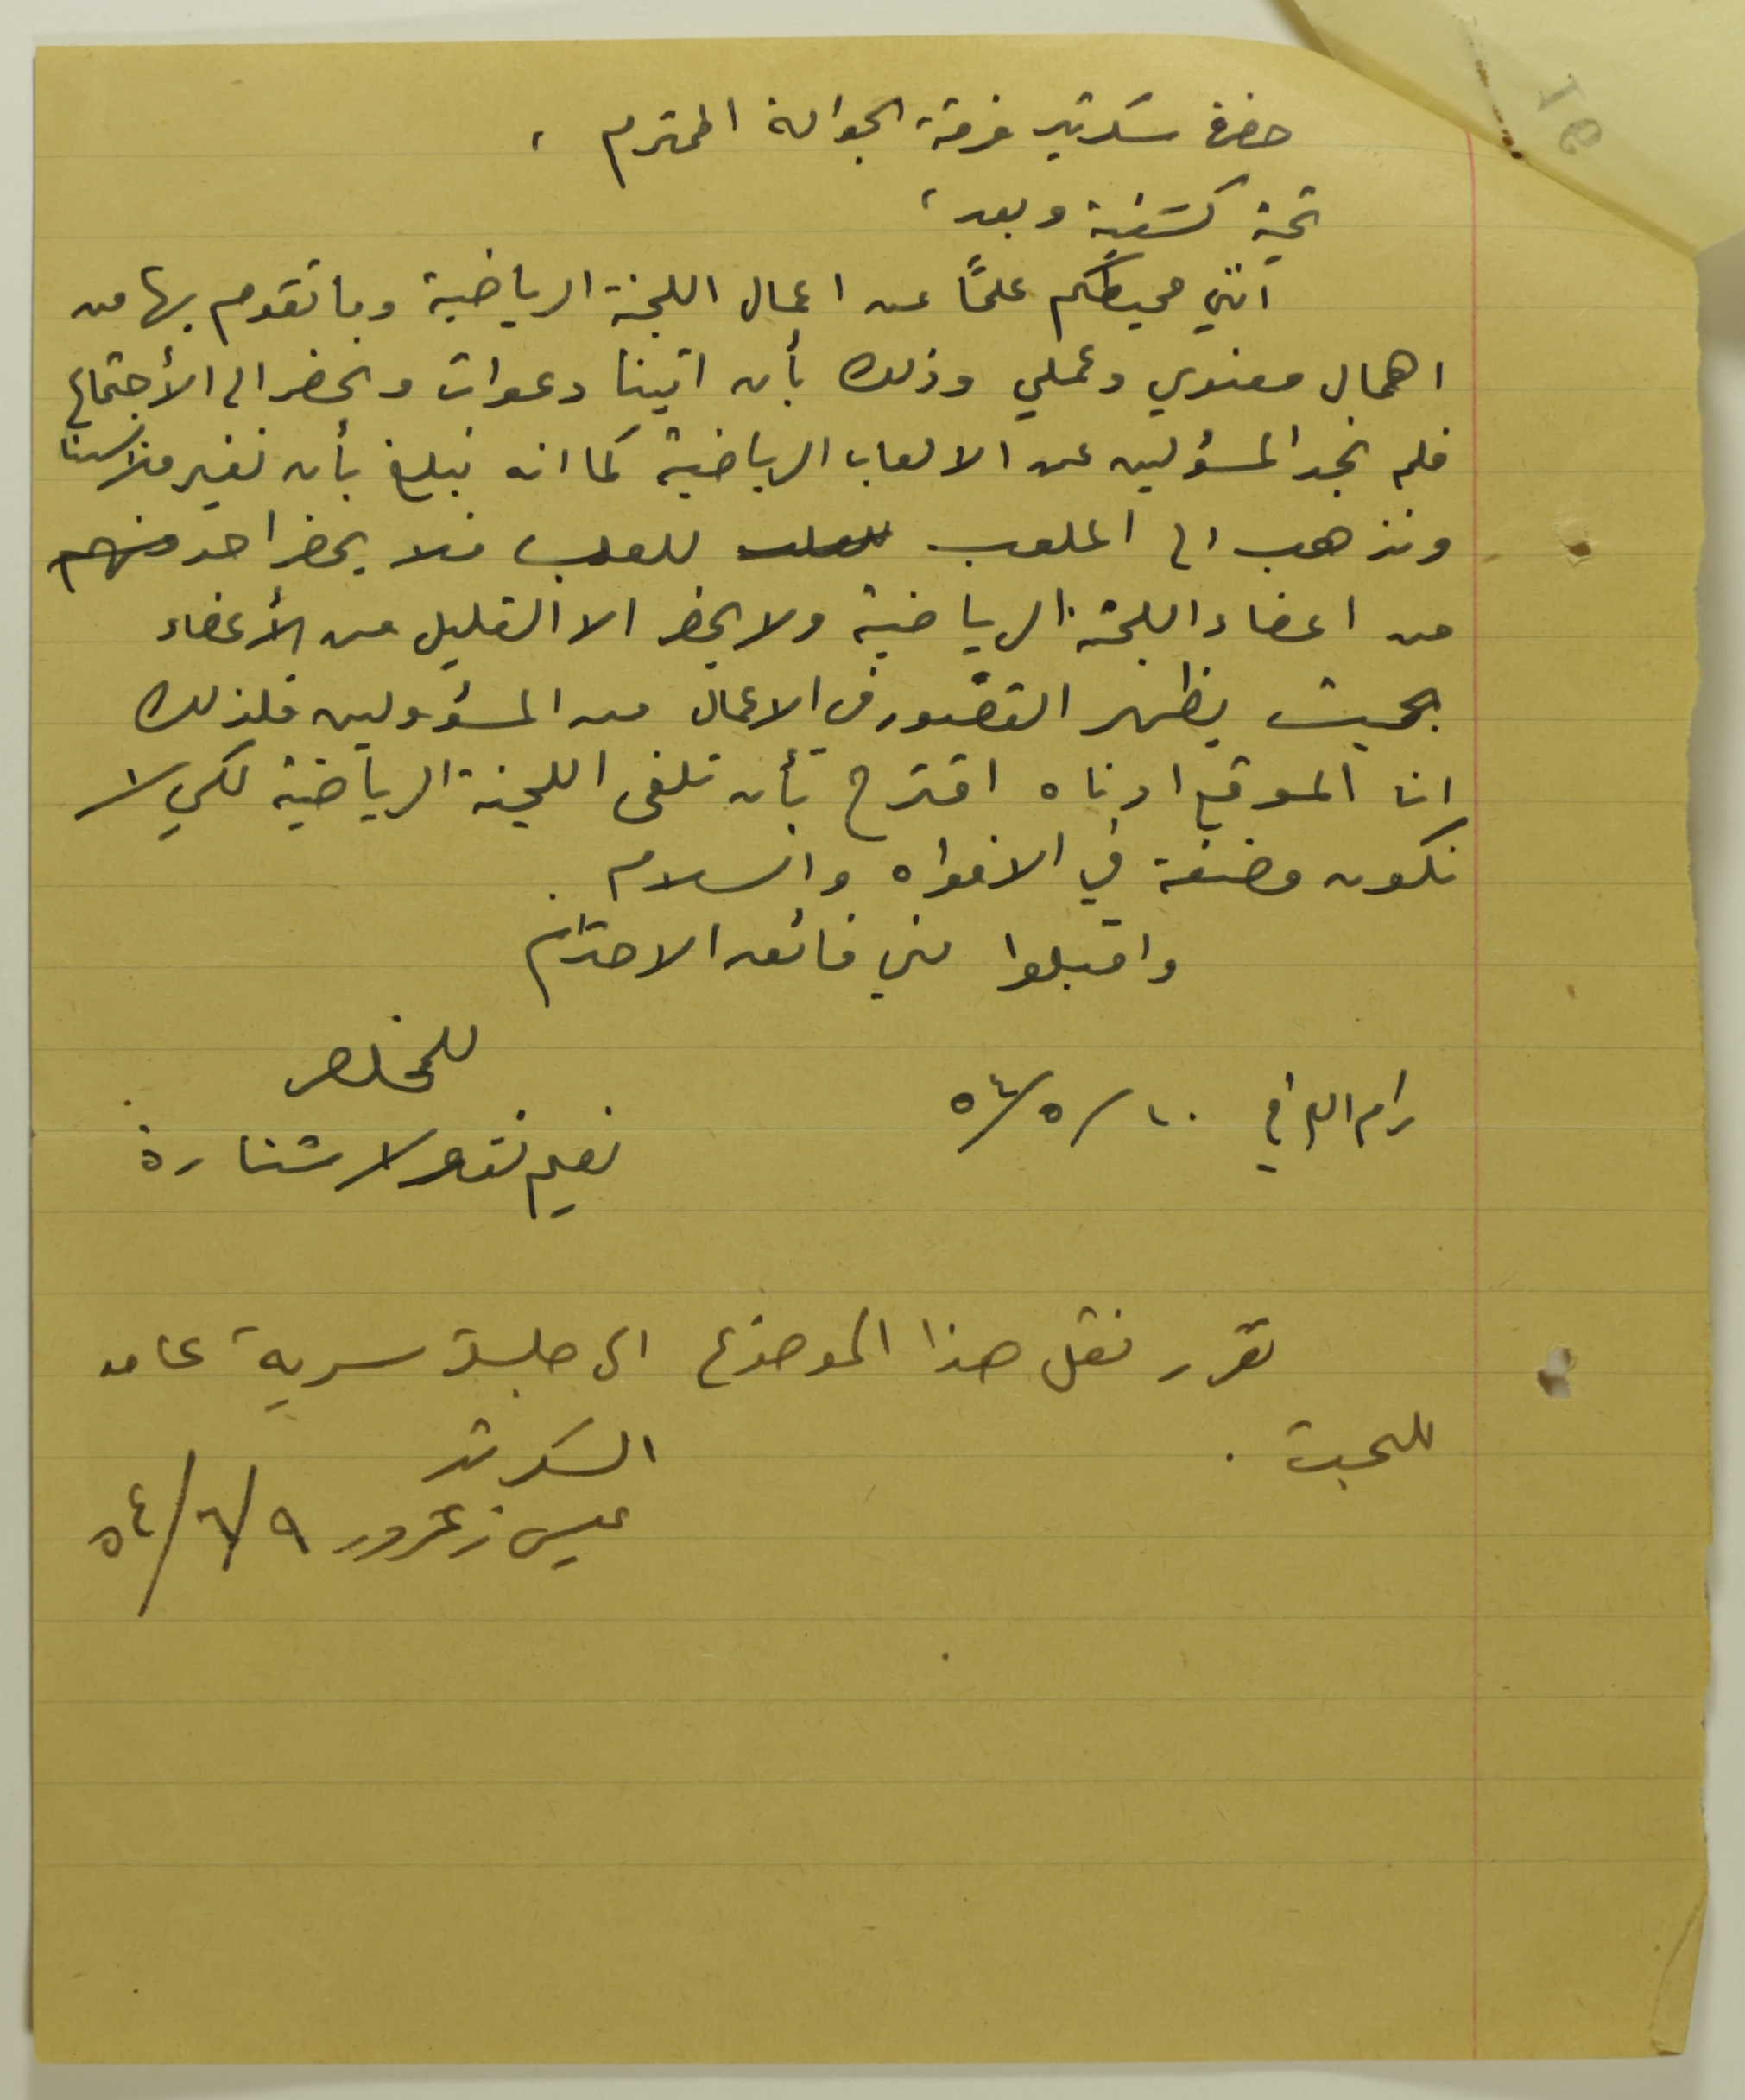 حضرة سكرتير فرقة الجوالة المحترم ،
تحية كشفية وبعد ،
انني محيطكم علمًا عن اعمال اللجنة الرياضية وما تقوم بها من
اهمال معنوي وعملي وذلك بأن اتينا دعوات ونحضر الى الأجتماع
فلم نجد المسؤلين عن الالعاب الرياضية كما انه نبلغ بأن نغير ملابسنا
ونذهب الى الملعب للعب فلا يحضر احد منهم
من اعضاء اللجنة الرياضية ولا يحضر الا القليل من الأعضاء
بحيث يظهر القصور في الاعمال من المسؤولين فلذلك
انا الموقع ادناه اقترح بأن تلغى اللجنة الرياضية لكي لا
نكون مضغة في الافواه والسلام .
واقبلوا مني فائق الاحترام
المخلص
رام الله في ١٠/٥/٥٤
نعيم نقولا شنارة
تقرر نقل هذا الموضوع الى جلسة سرية عامة
للبحث .
السكرتير
عيسى زعرور ٩/٦/٥٤